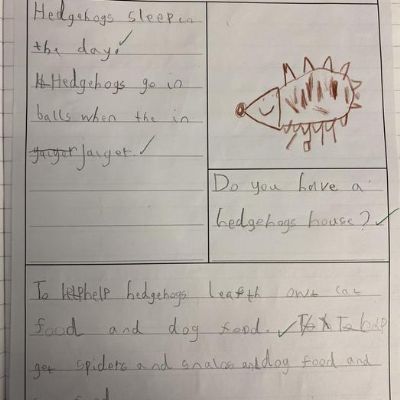 Hedgehogs sleep in
the day.
Hedgehogs go in
balls when the in
jaiget.
Do you have a
hedgehogs house?
To help hedgehogs leafth owt cat
food and dog food. To help
get spiders and snales and dog food and
food